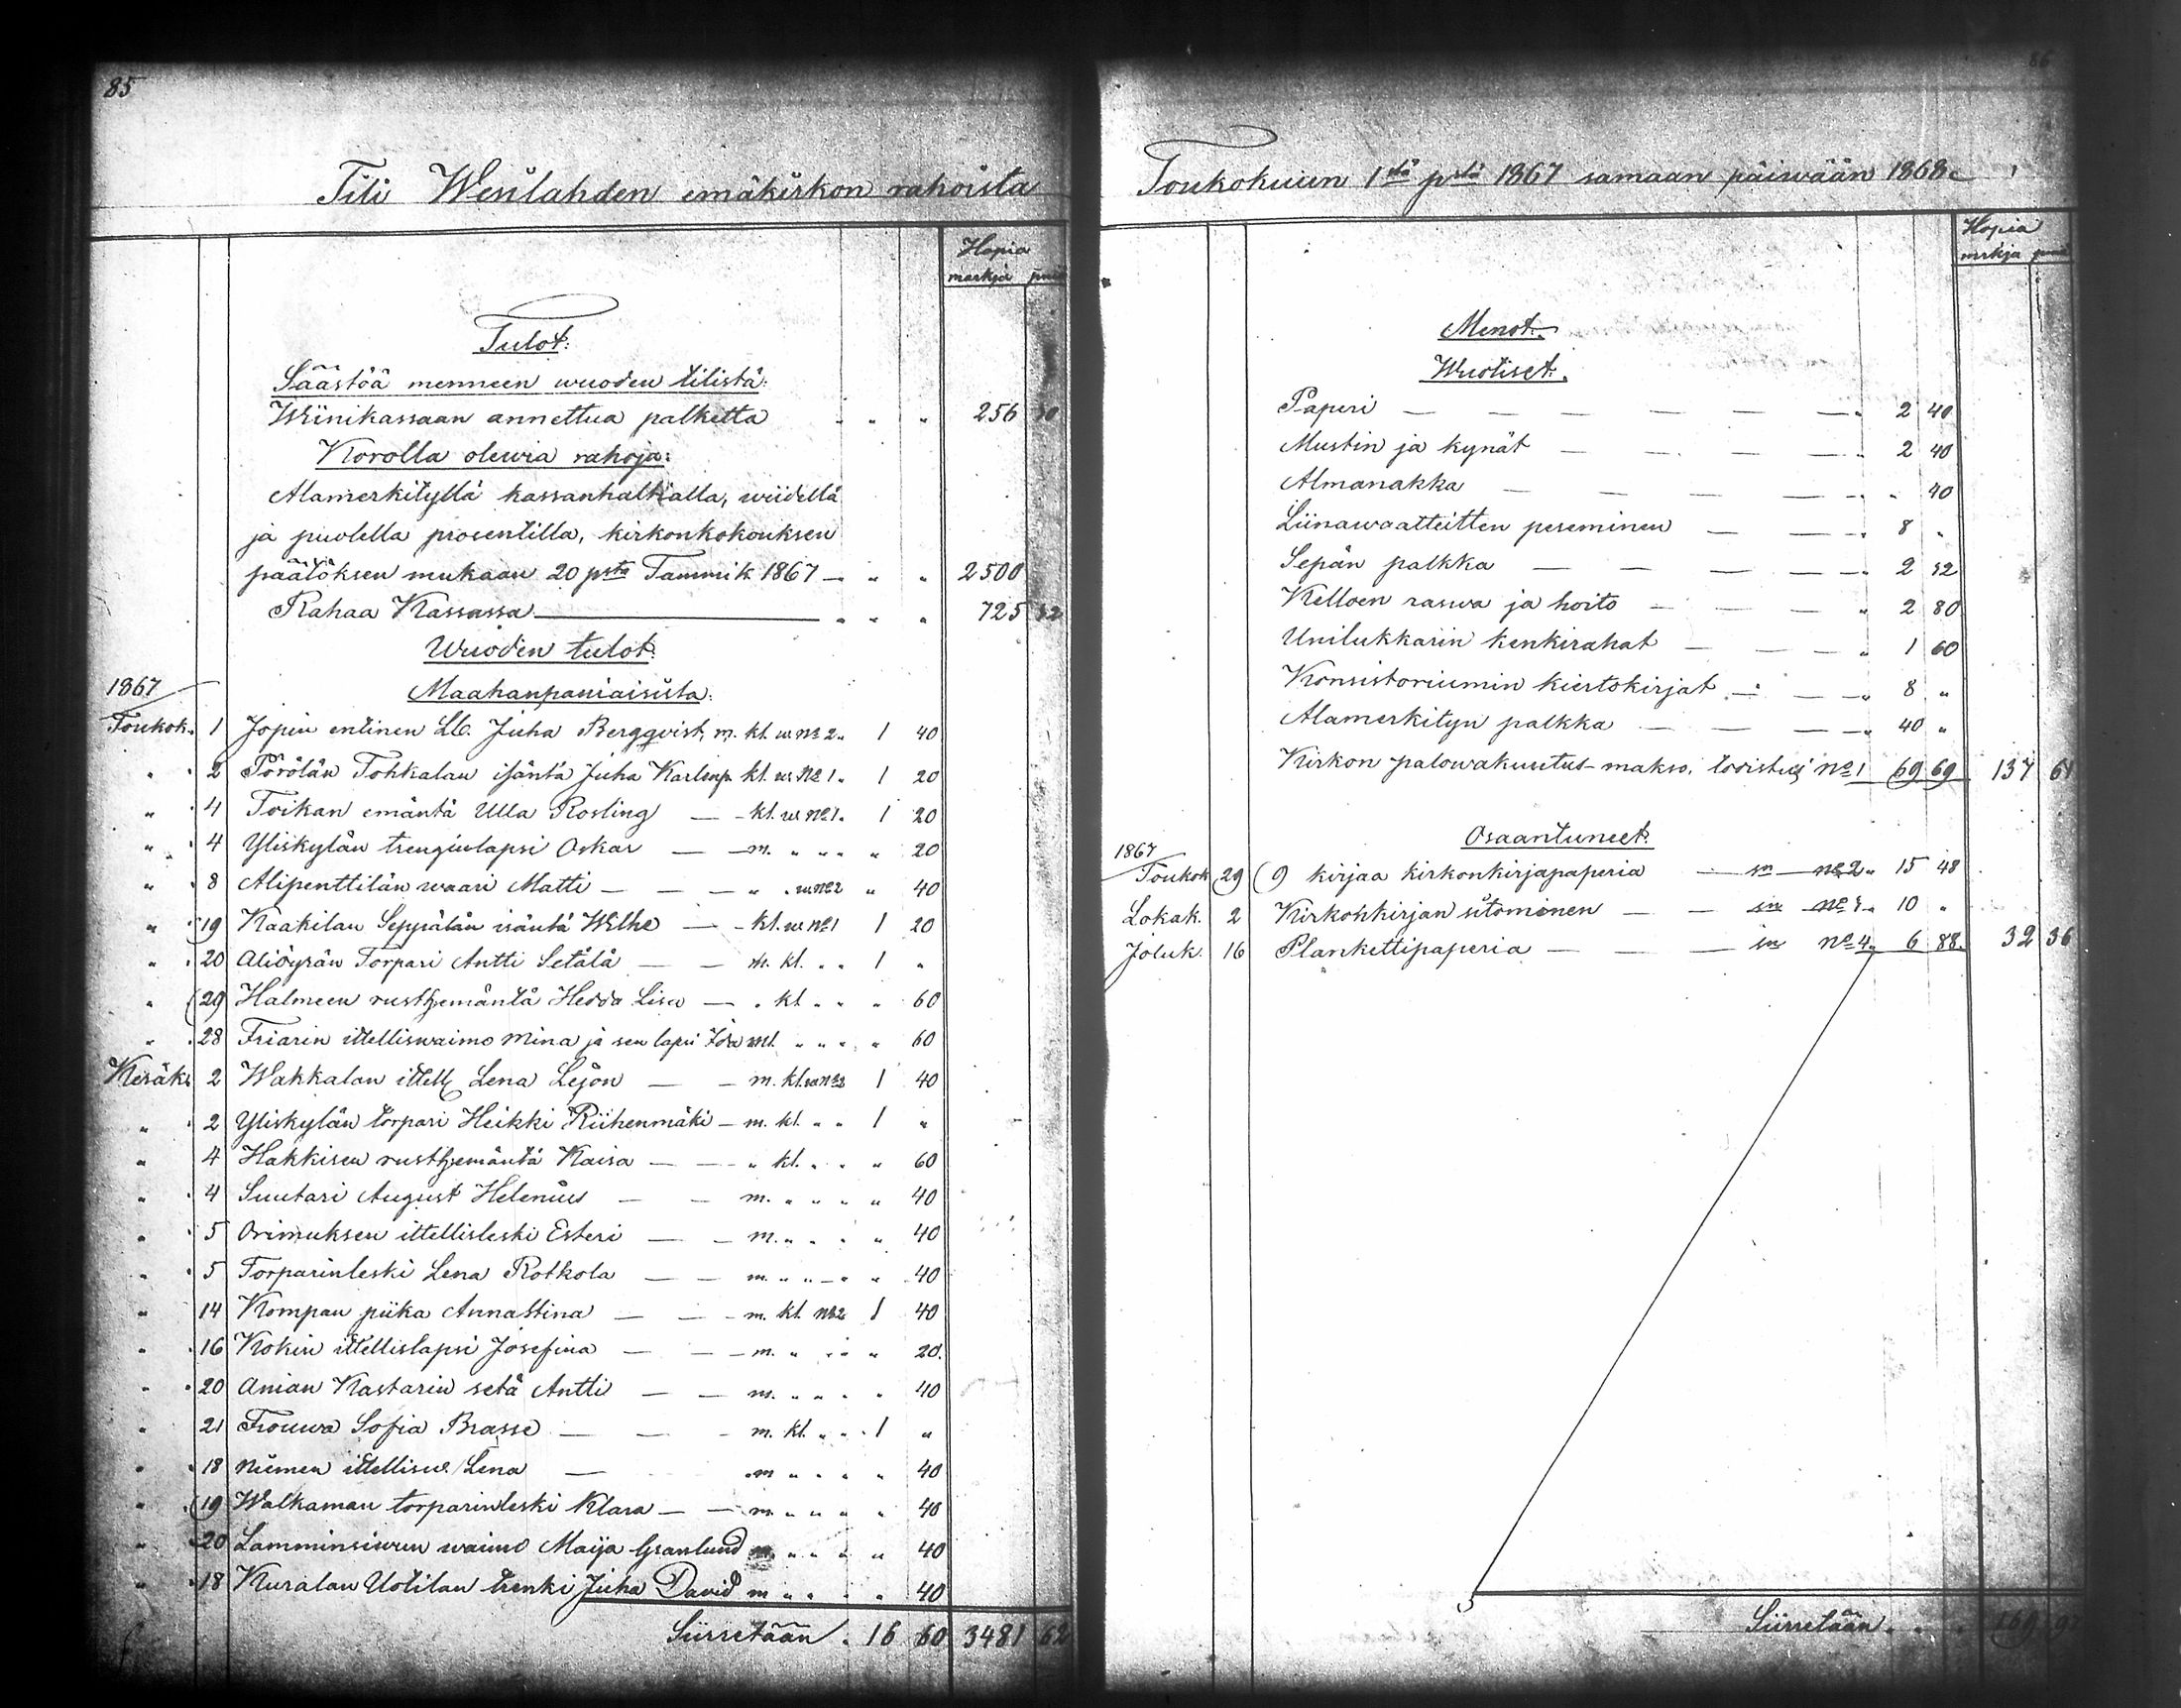 85
Tili Wesilahden emäkirkon rahoista
Hopia
markja
Tulot:
Säästöä menneen wuoden tilistä:
Wiinikassaan annettua palketta " " " 256
Korolla olewia rahoja:
Alamerkityllä kassanhaltialla, wiidellä
ja puolella prosentilla, kirkonkokouksen
päätöksen mukaan 20 pstä Tammik. 1867 — " " 2500
Rahaa Kassassa — " " " 725 32
Wuoden tulot:
1867 Maahanpaniaisista:
Toukok. 1 Jopin entinen Ll. Juha Bergqvist, m. kl. w. No 2 " 1 40
" " 2 Pörölän Tohkalan isäntä Juha Karlinp. kl. w. No 1 " 1 20
" " 4 Toikan emäntä Ulla Rosling — - kl. w. No 1 " 1 20
" " 4 Yliskylän trenginlapsi Oskar — — m. " " " " 20
" " 8 Alipenttilän waari Matti — — — " " w. No 2 " 40
" " 19 Kaakilan Seppälän isäntä Wilhe — - kl. w. No 1 1 20
" " 20 Aliöyrän Torpari Antti Setälä — — m. kl. " " 1 "
" 29 Halmeen rusth. emäntä Hedda Lisa — " kl. " " " 60
" " 28 Friarin ittelliswaimo Mina ja sen lapsi Ida " " " " 60
Kesäk. 2 Wakkalan ittell. Lena Lejon — — m. kl. w. No 2 1 40
" " 2 Yliskylän torpari Heikki Riihenmäki — m. kl. " " 1 "
" 4 Hakkisen rusth. emäntä Kaisa — — " kl. " " " 60
" " 4 Suutari August Helenius — — m. " " " " 40
" " 5 Orimuksen ittellisleski Esteri — — m. " " " " 40
" " 5 Torparinleski Lena Rotkola — — m. " " " " 40
" 14 Kompan piika Annastina — — m. kl. No 2 1 40
" " 16 Kokin ittellislapsi Josefina — — m. " " " " 20.
" " 20 Anian Kastarin setä Antti — — m. " " " " 40
" 21 Frouwa Sofia Brasse — — - m. kl. " " 1 "
" " 18 Niemen ittellisw. Lena — m " " " " 40
" " 19 Walkaman torparinleski Klara — — m. " " " " 40
" " 20 Lamminsiwun waimo Maija Granlund m. " " " " 40
" " 18 Kuralan Uotilan trenki Juha David m " " " " 40
Siirretään " 16 60 3481 62
86
Toukokuun 1stä pstä 1867 samaan päiwään 1868.
Hopia
mrkja
Menot.
Wuotiset.
Paperi — — — — — — " 2 40
Mustin ja kynät — — — — " 2 40
Almanakka — — — — " " 40
Liinawaatteitten peseminen — — — " 8 "
Sepän palkka — — — — — " 2 52
Kelloen raswa ja hoito — — — " 2 80
Unilukkarin kenkirahat — — — " 1 60
Konsistoriumin kiertokirjat — — " 8 "
Alamerkityn palkka — — — — " 40 "
Kirkon palowakuutus-makso, todistus No 1 69 69 137 61
Osaantuneet.
1867
Toukok 29 9 kirjaa kirkonkirjapaperia — — No 2 " 15 48
Lokak. 2 Kirkonkirjan sitominen — — No 3 " 10 "
Joluk. 16 Plankettipaperia — — — No 4 " 6 88. 32 36
Siirretään " " " 169